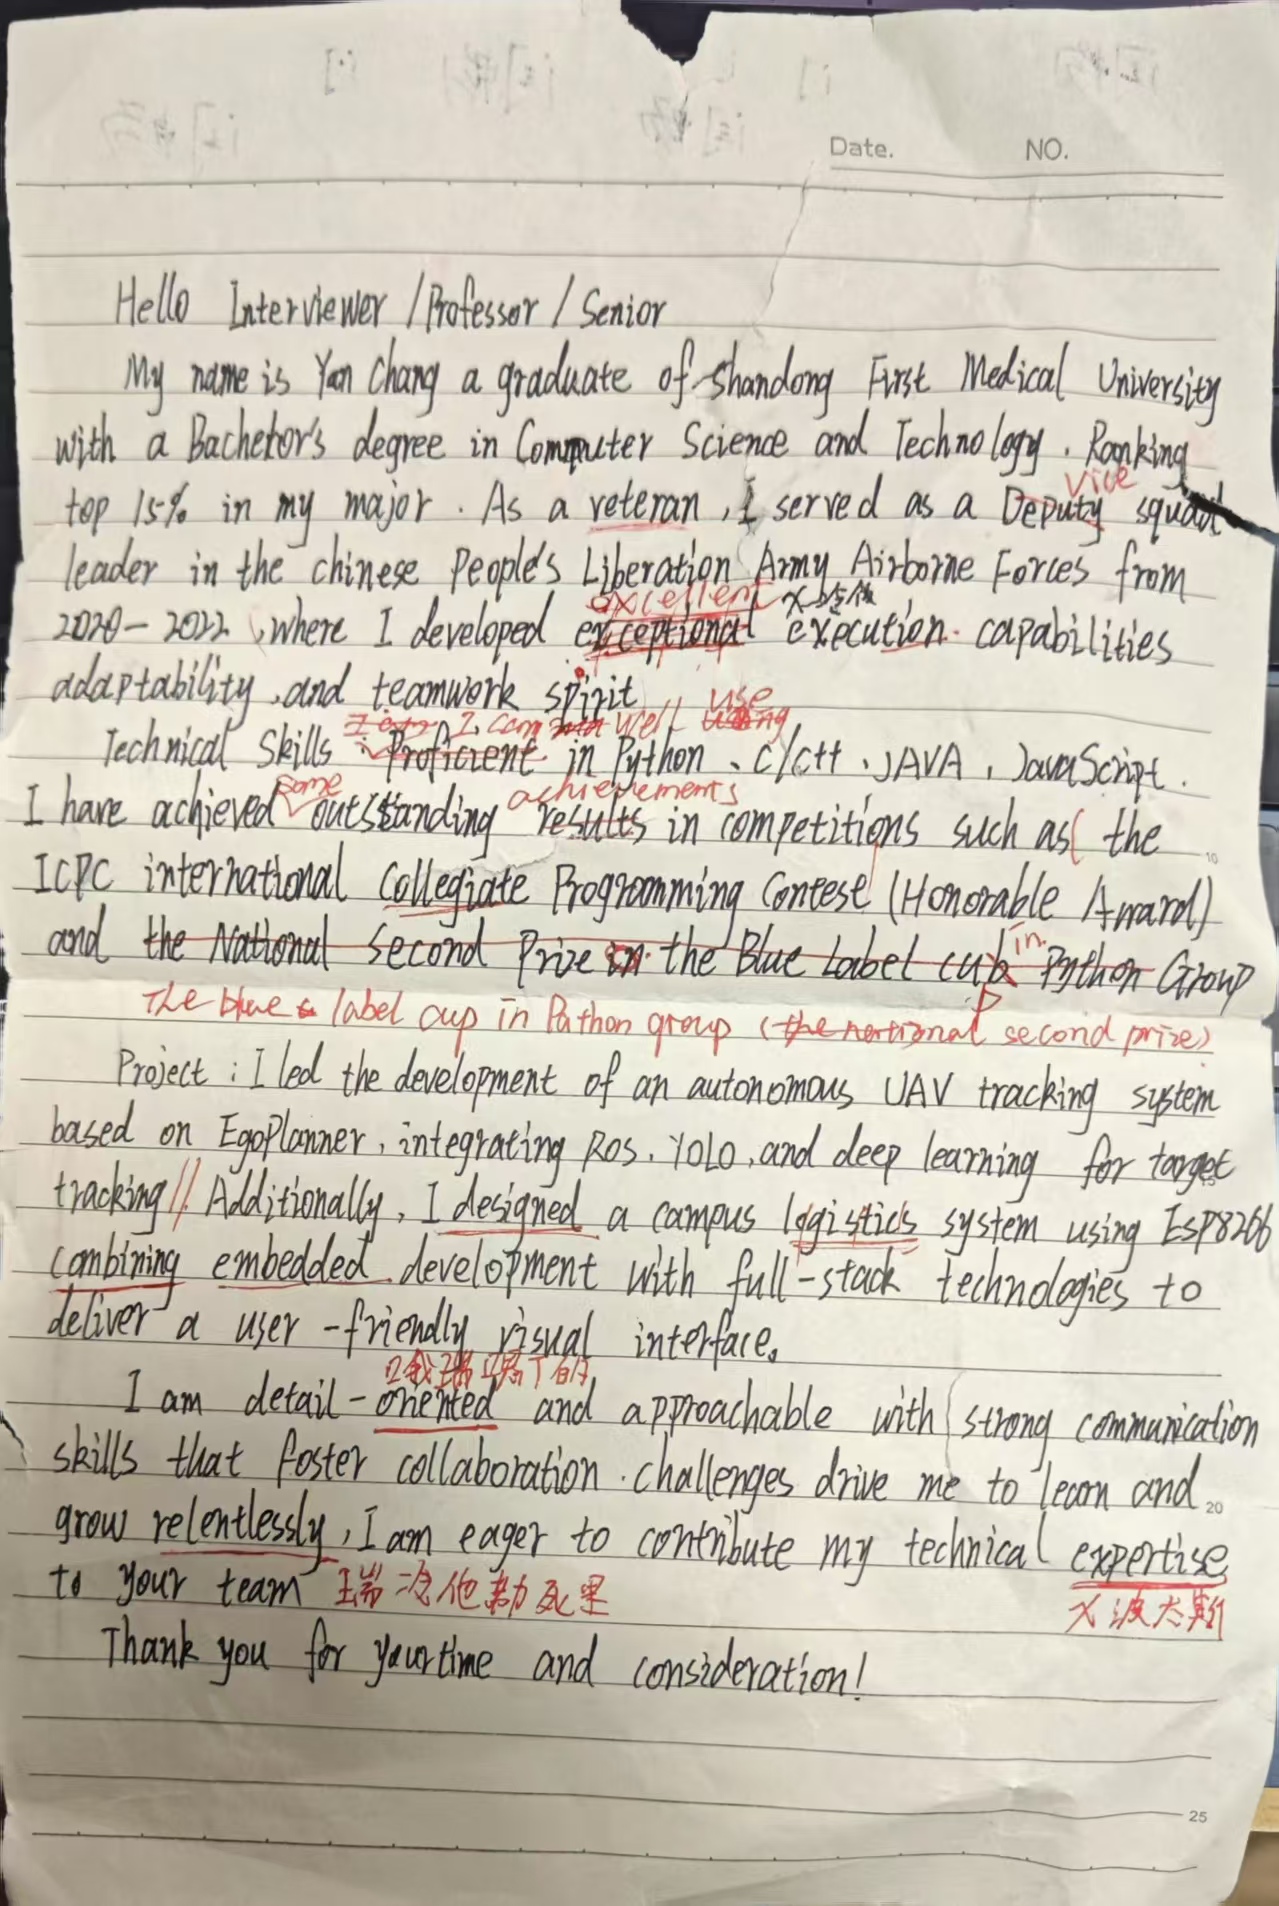 Date. NO.
Hello Interviewer / Professor / Senior
My name is Yan Chang a graduate of Shandong First Medical University
with a Bachelor's degree in Computer Science and Technology. Ranking
vice
top 15% in my major. As a veteran, I served as a Deputy squad
leader in the chinese People's Liberation Army Airborne Forces from
excellent
2020-2022, where I developed exceptional execution capabilities
adaptability, and teamwork spirit
I can well use
Technical Skills: Proficient in Python、C/C++、JAVA、JavaScript.
some achievements
I have achieved outstanding results in competitions such as( the
ICPC international Collegiate Programming Contest (Honorable Award)
in
and the National Second Prize in the Blue Label cub Python Group
p
The blue label cup in Pathon group (the national second prize)
Project: I led the development of an autonomous UAV tracking system
based on EgoPlanner, integrating Ros、YOLO, and deep learning for target
tracking// Additionally, I designed a campus logistics system using Esp8266
combining embedded development with full-stack technologies to
deliver a user-friendly visual interface。
I am detail-oriented and approachable with strong communication
skills that foster collaboration. challenges drive me to learn and
20
grow relentlessly, I am eager to contribute my technical expertise
to your team 瑞次他勒死里
X波太斯
Thank you for your time and consideration!
25